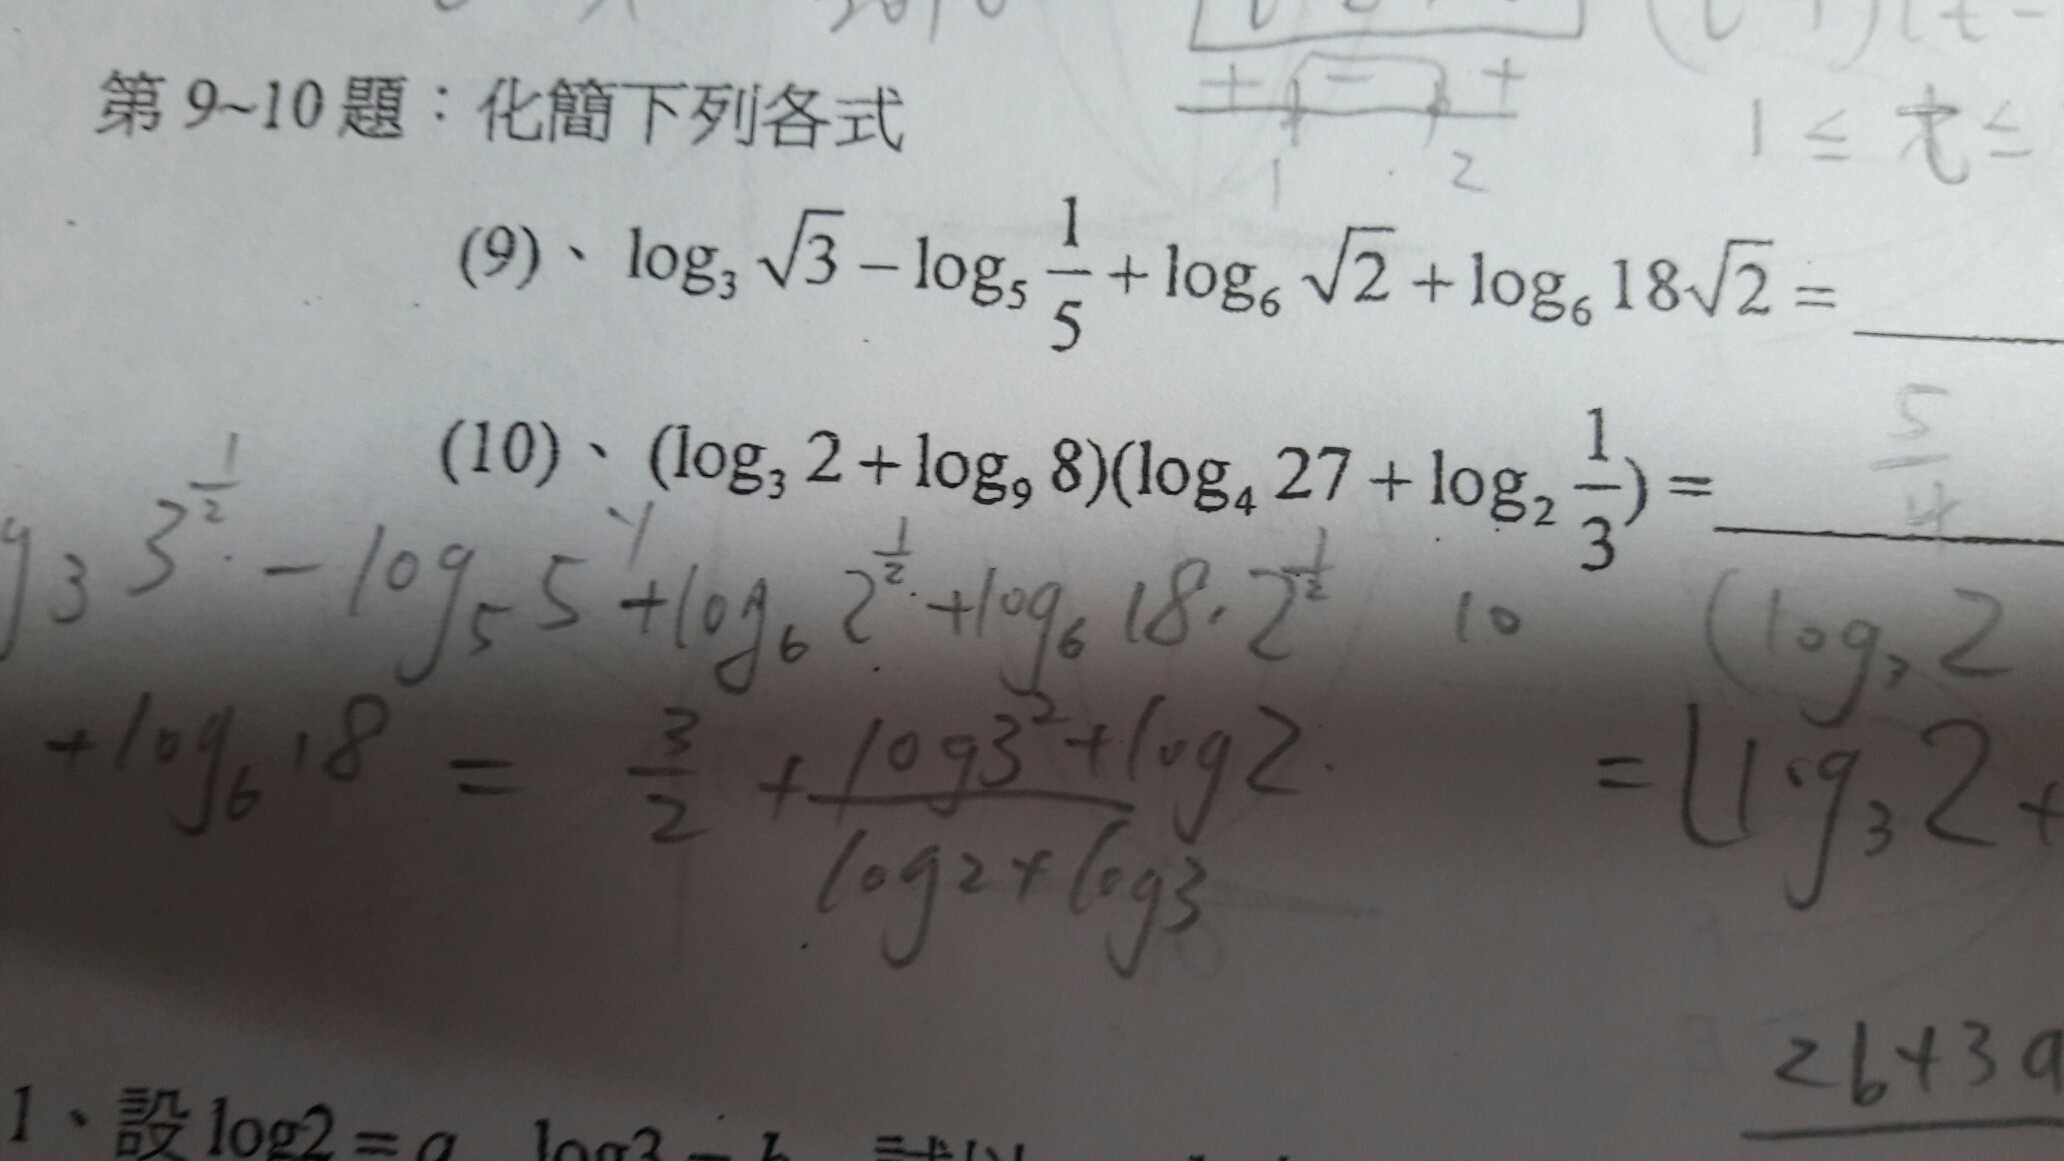 + - +
1 2
1 ≤ t ≤
第 9~10 題：化簡下列各式
(9)、 log₃ √3 − log₅ 1/5 + log₆ √2 + log₆ 18√2 = ____
(10)、 (log₃ 2 + log₉ 8)(log₄ 27 + log₂ 1/3) = ____ 5/4
g₃ 3^(1/2) − log₅ 5^-1 + log₆ 2^(1/2) + log₆ 18 · 2^(1/2) 10 (log₃ 2
+ log₆ 18 = 3/2 + (log3² + log2)/(log2 + log3) = (log₃ 2 +
2b+3a
1、設 log2 = a